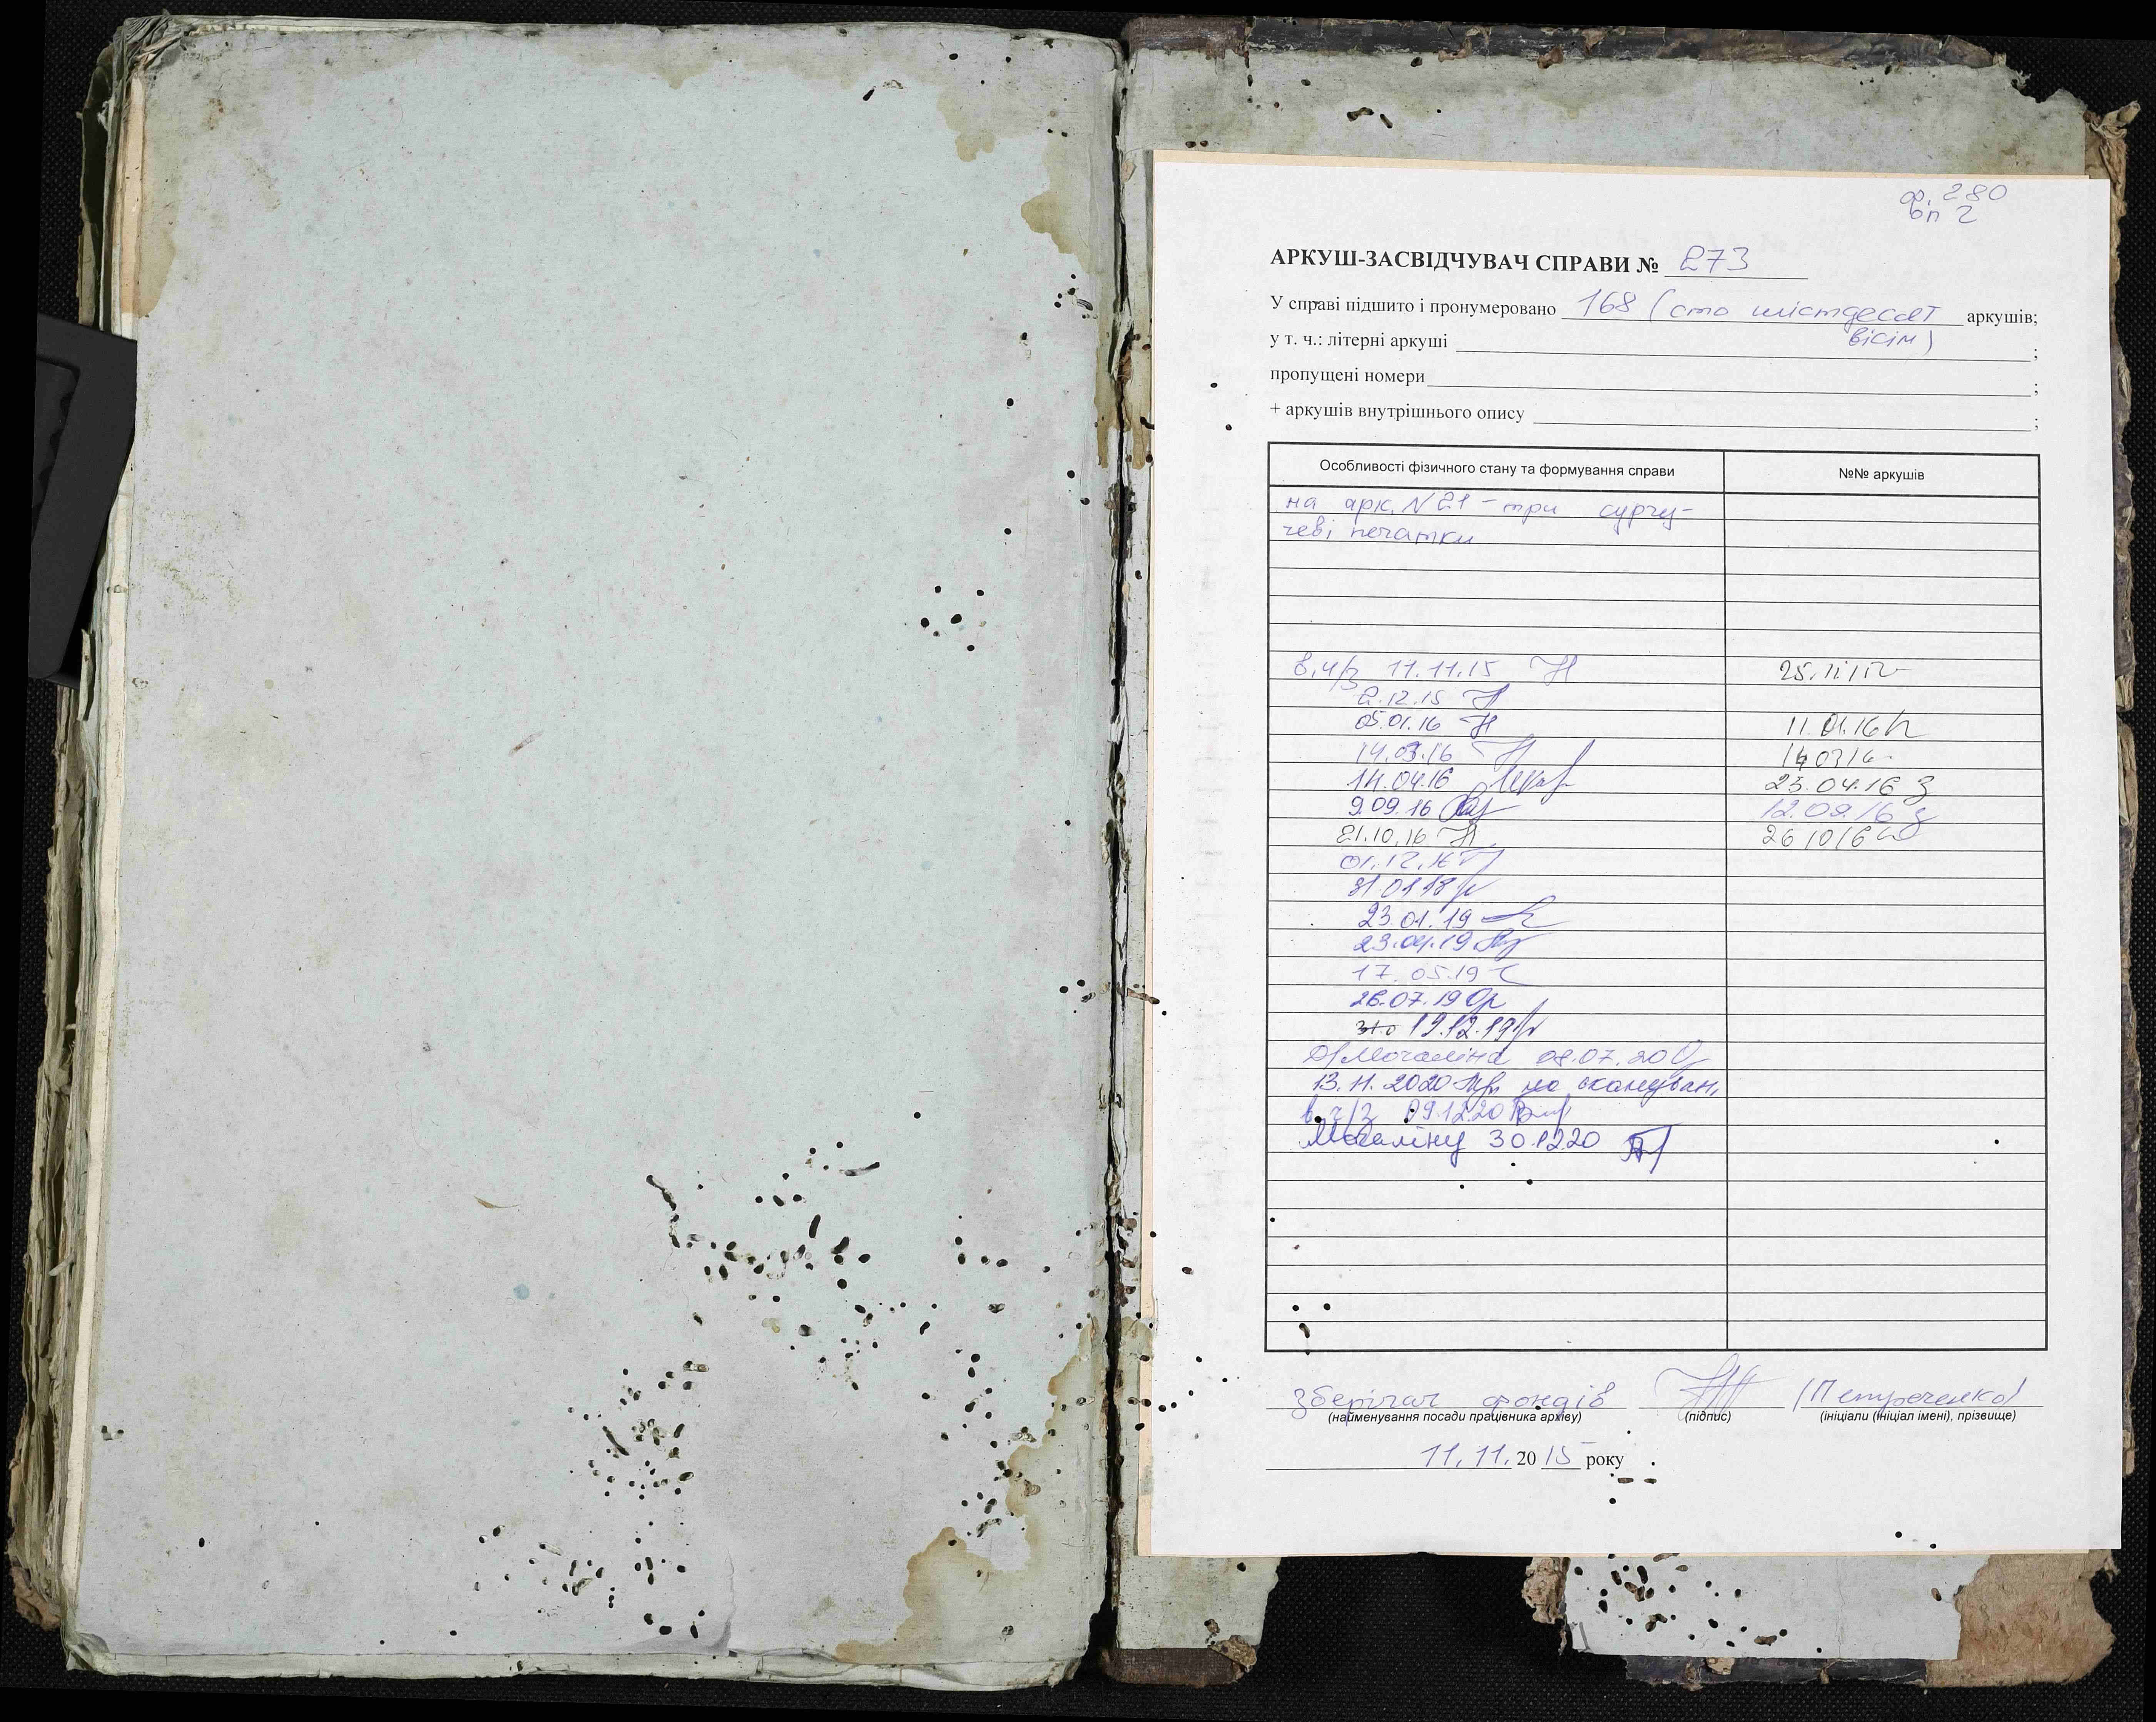 ф. 280
оп 2
АРКУШ-ЗАСВІДЧУВАЧ СПРАВИ № 273
У справі підшито і пронумеровано 168 (сто шістдесят аркушів;
вісім)
у т. ч.: літерні аркуші ;
пропущені номери ;
+ аркушів внутрішнього опису ;
Особливості фізичного стану та формування справи №№ аркушів
на арк. N 21 - три сургу-
чеві печатки
в.ч/з 11.11.15
2.12.15
05.01.16 11.01.16
14.03.16 14 03 16
14.04.16 23.04.16
9.09.16 12.09.16
21.10.16 26 10 16
01.12.16
31.01.18
23.01.19
23.04.19
17.05.19
26.07.19
19.12.19
Мочаліна 08.07.20
13.11.2020 на скануван.
в.ч/з 09.12.20
30.12.20
зберігач фондів (Петреченко)
(найменування посади працівника архіву) (підпис) (ініціали (ініціал імені), прізвище)
11.11. 20 15 року